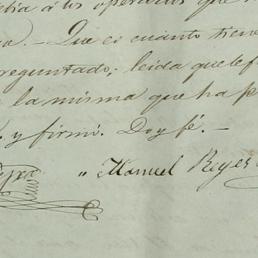 bia á los operarios que
. — Que es cuanto tiene
reguntado; leida que le f
la misma que ha p
y firmó. Doy fé. —
" Manuel Reyes